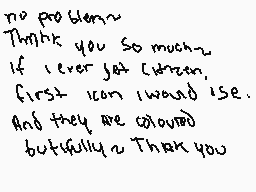 no problem~
Thank you so much~
if i ever get Citizen,
first icon i would use.
And they are coloured
butifully~ Thank you